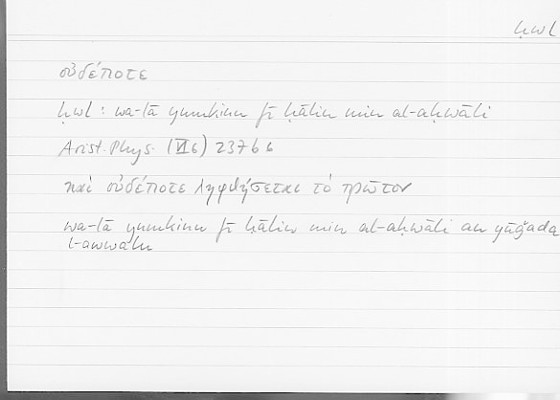 ḥwl
οὐδέποτε
ḥwl : wa-lā yumkinu fī ḥālin min al-aḥwāli
Arist. Phys. (VI 6) 237 b 6
καὶ οὐδέποτε ληφθήσεται τὸ πρῶτον
wa-lā yumkinu fī ḥālin min al-aḥwāli an yūǧada
l-awwalu